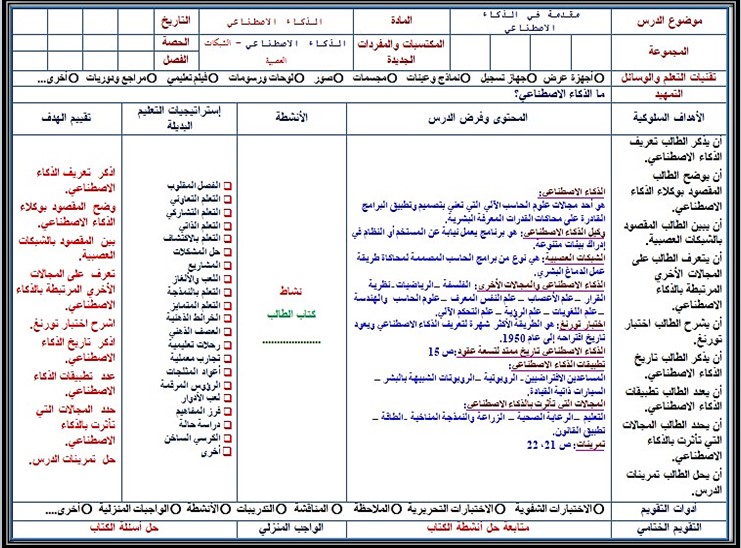 موضوع الدرس
مقدمة في الذكاء الاصطناعي
المادة
الذكاء الاصطناعي
التاريخ
المجموعة
المكتسبات والمفردات الجديدة
الذكاء الاصطناعي – الشبكات العصبية
الحصة
الفصل
تقنيات التعلم والوسائل
أجهزة عرض
جهاز تسجيل
نماذج وعينات
مجسمات
صور
لوحات ورسومات
فيلم تعليمي
مراجع ودوريات
أخرى....
التمهيد
ما الذكاء الاصطناعي؟
الأهداف السلوكية
المحتوى وفرض الدرس
الأنشطة
إستراتيجيات التعليم البديلة
تقييم الهدف
أن يذكر الطالب تعريف
الذكاء الاصطناعي.
أن يوضح الطالب
المقصود بوكلاء الذكاء
الاصطناعي.
أن يبين الطالب المقصود
بالشبكات العصبية.
أن يتعرف الطالب على
المجالات الأخري
المرتبطة بالذكاء
الاصطناعي.
أن يشرح الطالب اختبار
تورنغ.
أن يذكر الطالب تاريخ
الذكاء الاصطناعي.
أن يعدد الطالب تطبيقات
الذكاء الاصطناعي.
أن يحدد الطالب المجالات
التي تأثرت بالذكاء
الاصطناعي.
أن يحل الطالب تمرينات
الدرس.
الذكاء الاصطناعي:
هو أحد مجالات علوم الحاسب الآلي التي تعني بتصميم وتطبيق البرامج
القادرة على محاكات القدرات المعرفة البشرية.
وكيل الذكاء الاصطناعي: هو برنامج يعمل نيابة عن المستخدم أو النظام في
إدراك بيئات متنوعة.
الشبكات العصبية: هي نوع من برامج الحاسب المصممة لمحاكاة طريقة
عمل الدماغ البشري.
الذكاء الاصطناعي والمجالات الأخرى: الفلسفة – الرياضيات – نظرية
القرار – علم الأعصاب – علم النفس المعرف – علوم الحاسب والهندسة
– علم اللغويات – علم الرؤية – علم التحكم الآلي.
اختبار تورنغ: هو الطريقة الأكثر شهرة لتعريف الذكاء الاصطناعي ويعود
تاريخ اقتراحه إلى عام 1950.
الذكاء الاصطناعي تاريخ ممتد لتسعة عقود: ص 15
تطبيقات الذكاء الاصطناعي:
المساعدين الافتراضيين – الروبوتية – الروبوتات الشبيهة بالبشر –
السيارات ذاتية القيادة.
المجالات التي تأثرت بالذكاء الاصطناعي:
التعليم – الرعاية الصحية – الزراعة والنمذجة المناخية – الطاقة –
تطبيق القانون.
تمرينات: ص 21، 22
نشاط
كتاب الطالب
......................
الفصل المقلوب
التعلم التعاوني
التعلم التشاركي
التعلم الذاتي
التعلم بالاكتشاف
حل المشكلات
المشاريع
اللعب والألغاز
التعلم بالنمذجة
التعلم المتمايز
الخرائط الذهنية
العصف الذهني
رحلات تعليمية
تجارب معملية
أعواد المثلجات
الرؤوس المرقمة
لعب الأدوار
فرز المفاهيم
دراسة حالة
الكرسي الساخن
أخرى
اذكر تعريف الذكاء
الاصطناعي.
وضح المقصود بوكلاء
الذكاء الاصطناعي.
بين المقصود بالشبكات
العصبية.
تعرف على المجالات
الأخري المرتبطة بالذكاء
الاصطناعي.
اشرح اختبار تورنغ.
اذكر تاريخ الذكاء
الاصطناعي.
عدد تطبيقات الذكاء
الاصطناعي.
حدد المجالات التي
تأثرت بالذكاء
الاصطناعي.
حل تمرينات الدرس.
أدوات التقويم
الاختبارات الشفوية
الاختبارات التحريرية
الملاحظة
المناقشة
التدريبات
الأنشطة
الواجبات المنزلية
أخرى....
التقويم الختامي
متابعة حل أنشطة الكتاب
الواجب المنزلي
حل أسئلة الكتاب